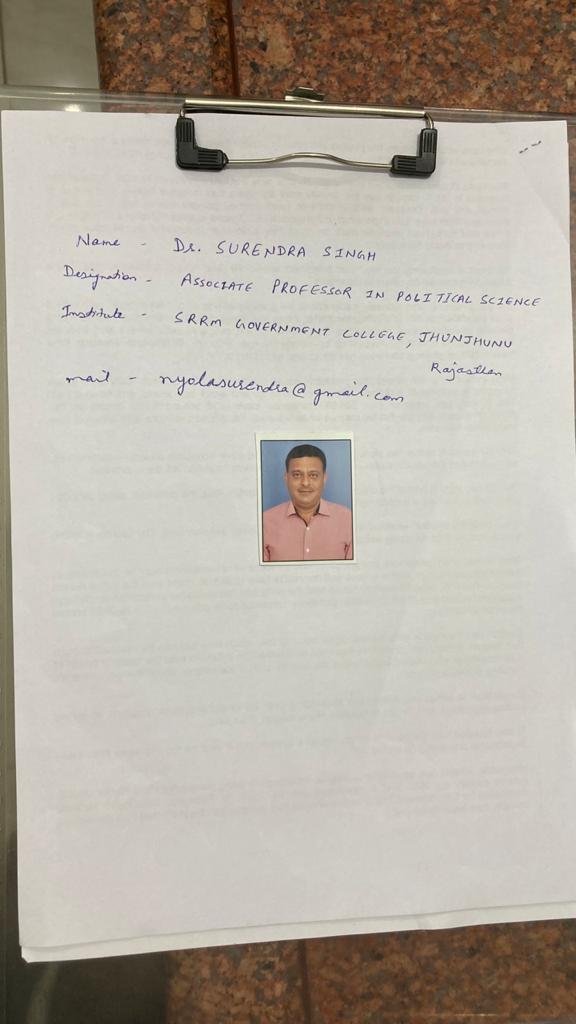 Name - Dr. SURENDRA SINGH
Designation - ASSOCIATE PROFESSOR IN POLITICAL SCIENCE
Institute - SRRM GOVERNMENT COLLEGE, JHUNJHUNU
Rajasthan
mail - nyolasurendra@gmail.com